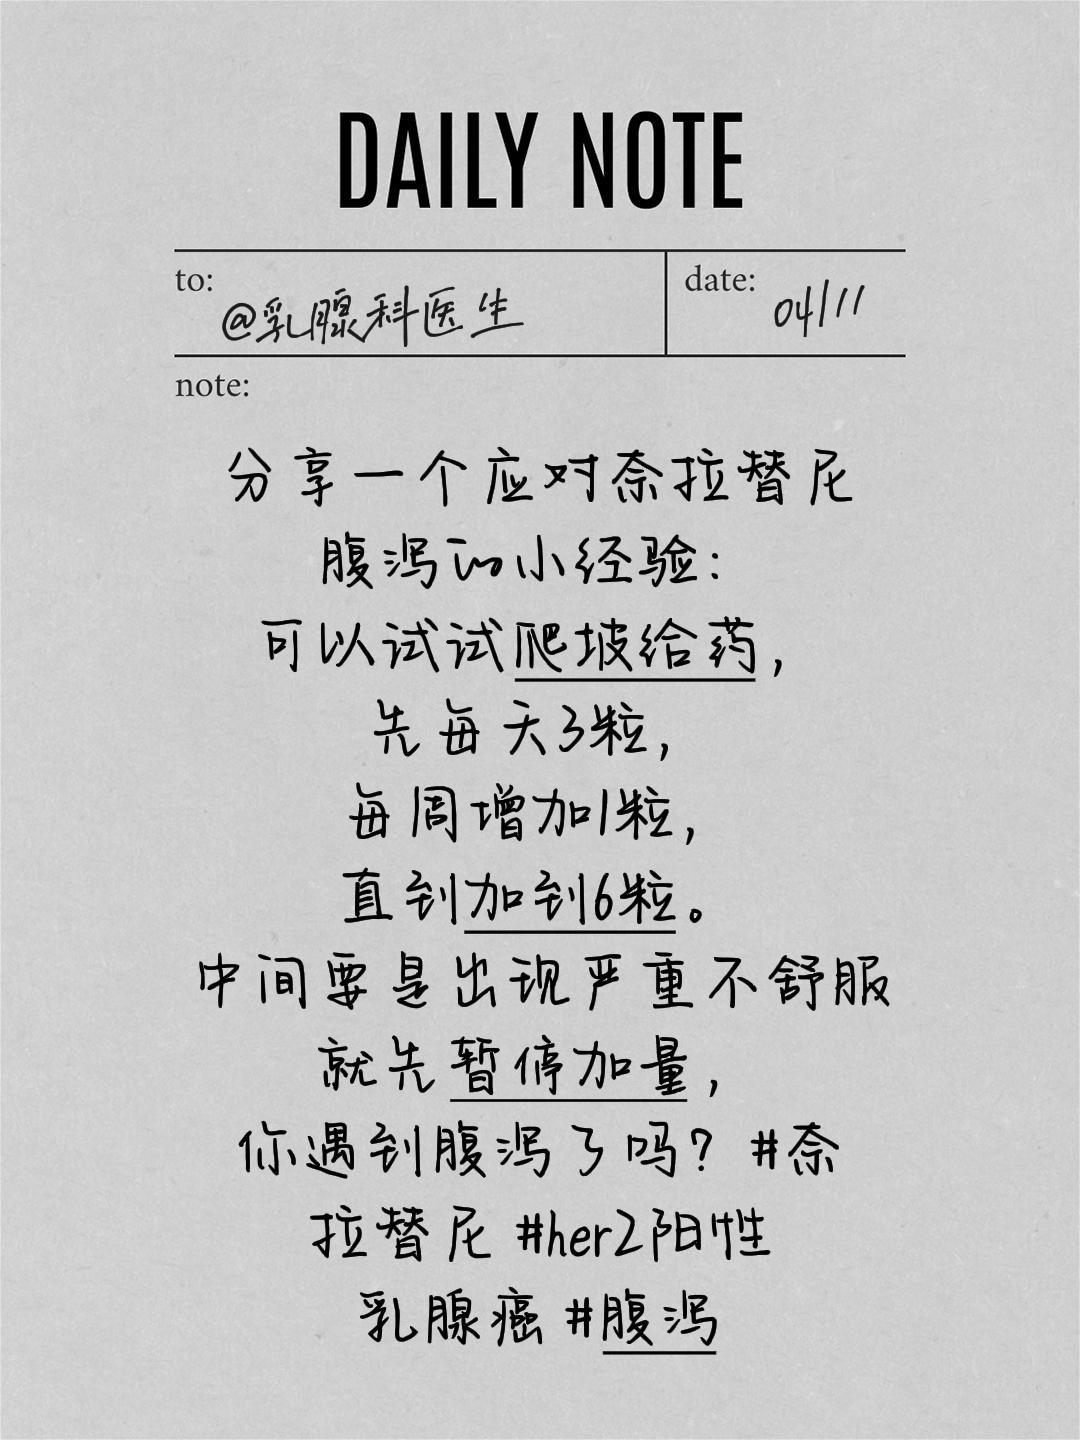 DAILY NOTE
to: @乳腺科医生
date: 04/11
note:
分享一个应对奈拉替尼
腹泻的小经验：
可以试试爬坡给药，
先每天3粒，
每周增加1粒，
直到加到6粒。
中间要是出现严重不舒服
就先暂停加量，
你遇到腹泻了吗？#奈
拉替尼 #her2阳性
乳腺癌 #腹泻